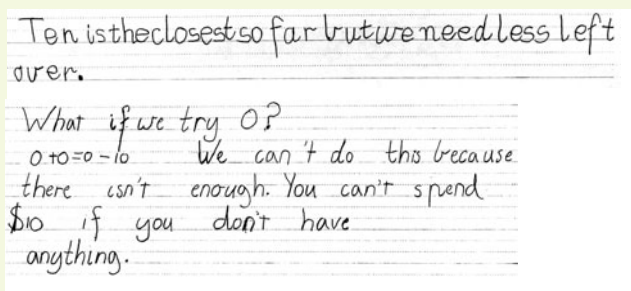 Ten is the closest so far but we need less left
over.
What if we try 0?
0+0=0-10 We can't do this because
there isn't enough. You can't spend
$10 if you don't have
anything.